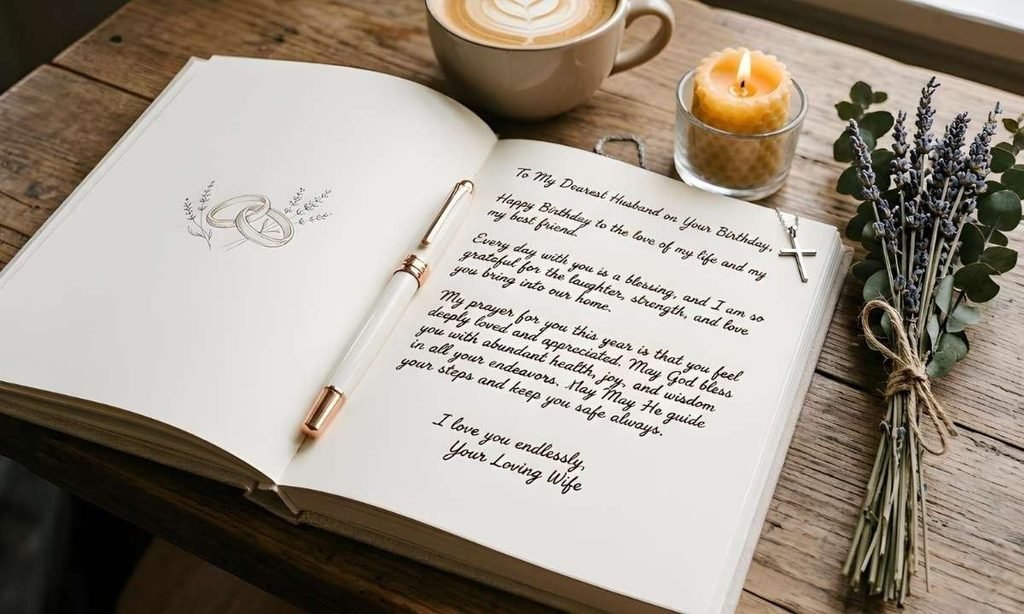 To My Dearest Husband on Your Birthday,
Happy Birthday to the love of my life and my
my best friend.
Every day with you is a blessing, and I am so
grateful for the laughter, strength, and love
you bring into our home.
My prayer for you this year is that you feel
deeply loved and appreciated. May God bless
you with abundant health, joy, and wisdom
in all your endeavors. May May He guide
your steps and keep you safe always.
I love you endlessly,
Your Loving Wife